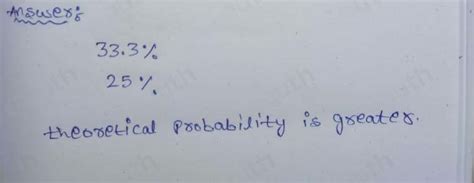 Answer:
33.3%
25%
theoretical probability is greater.